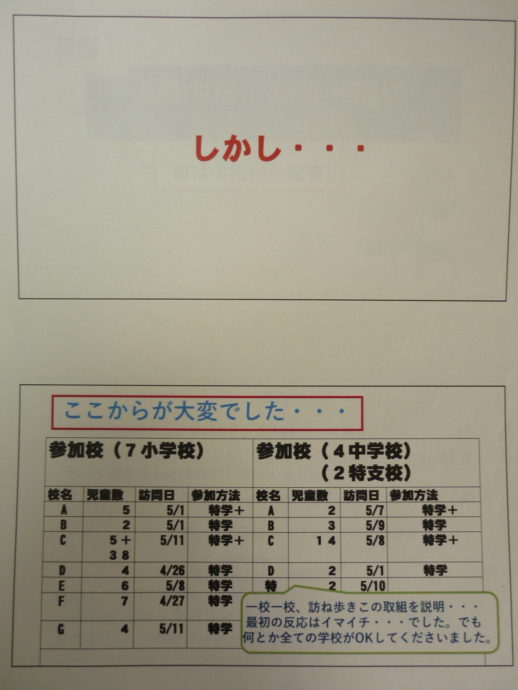 しかし・・・
ここからが大変でした・・・
参加校（７小学校） 参加校（４中学校）
（２特支校）
校名 児童数 訪問日 参加方法 校名 児童数 訪問日 参加方法
A 5 5/1 特学＋ A 2 5/7 特学＋
B 2 5/1 特学 B 3 5/9 特学
C 5＋ 5/11 特学＋ C 14 5/8 特学＋
38
D 4 4/26 特学 D 2 5/1 特学
E 6 5/8 特学 特 2 5/10
F 7 4/27 特学
G 4 5/11 特学
一校一校、訪ね歩きこの取組を説明・・・
最初の反応はイマイチ・・・でした。でも
何とか全ての学校がOKしてくださいました。